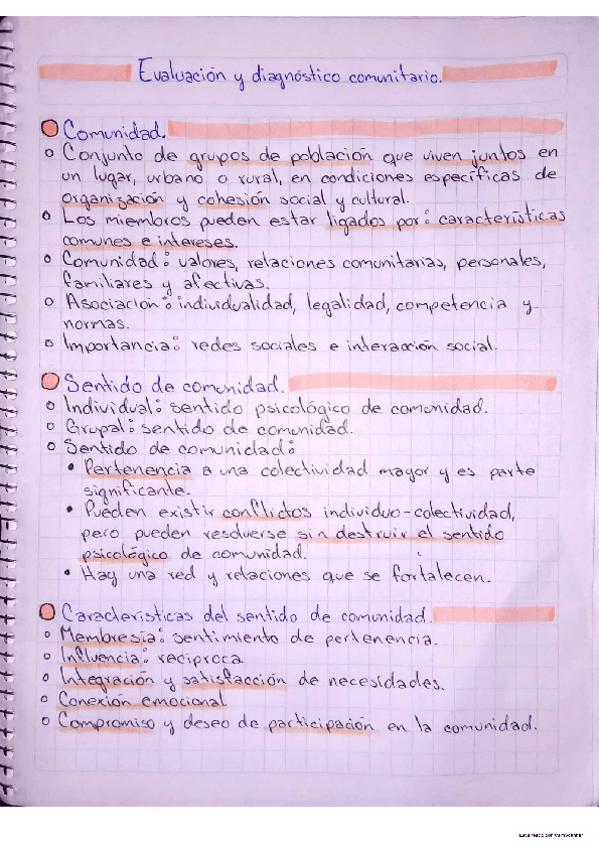 Evaluación y diagnóstico comunitario.
Comunidad.
Conjunto de grupos de población que viven juntos en
un lugar, urbano o rural, en condiciones específicas de
organización y cohesión social y cultural.
Los miembros pueden estar ligados por: características
comunes e intereses.
Comunidad: valores, relaciones comunitarias, personales,
familiares y afectivas.
Asociación: individualidad, legalidad, competencia y
normas.
Importancia: redes sociales e interacción social.
Sentido de comunidad.
Individual: sentido psicológico de comunidad.
Grupal: sentido de comunidad.
Sentido de comunidad:
Pertenencia a una colectividad mayor y es parte
significante.
Pueden existir conflictos individuo-colectividad,
pero pueden resolverse sin destruir el sentido
psicológico de comunidad.
Hay una red y relaciones que se fortalecen.
Características del sentido de comunidad.
Membresia: sentimiento de pertenencia.
Influencia: reciproca
Integración y satisfacción de necesidades.
Conexión emocional
Compromiso y deseo de participación en la comunidad.